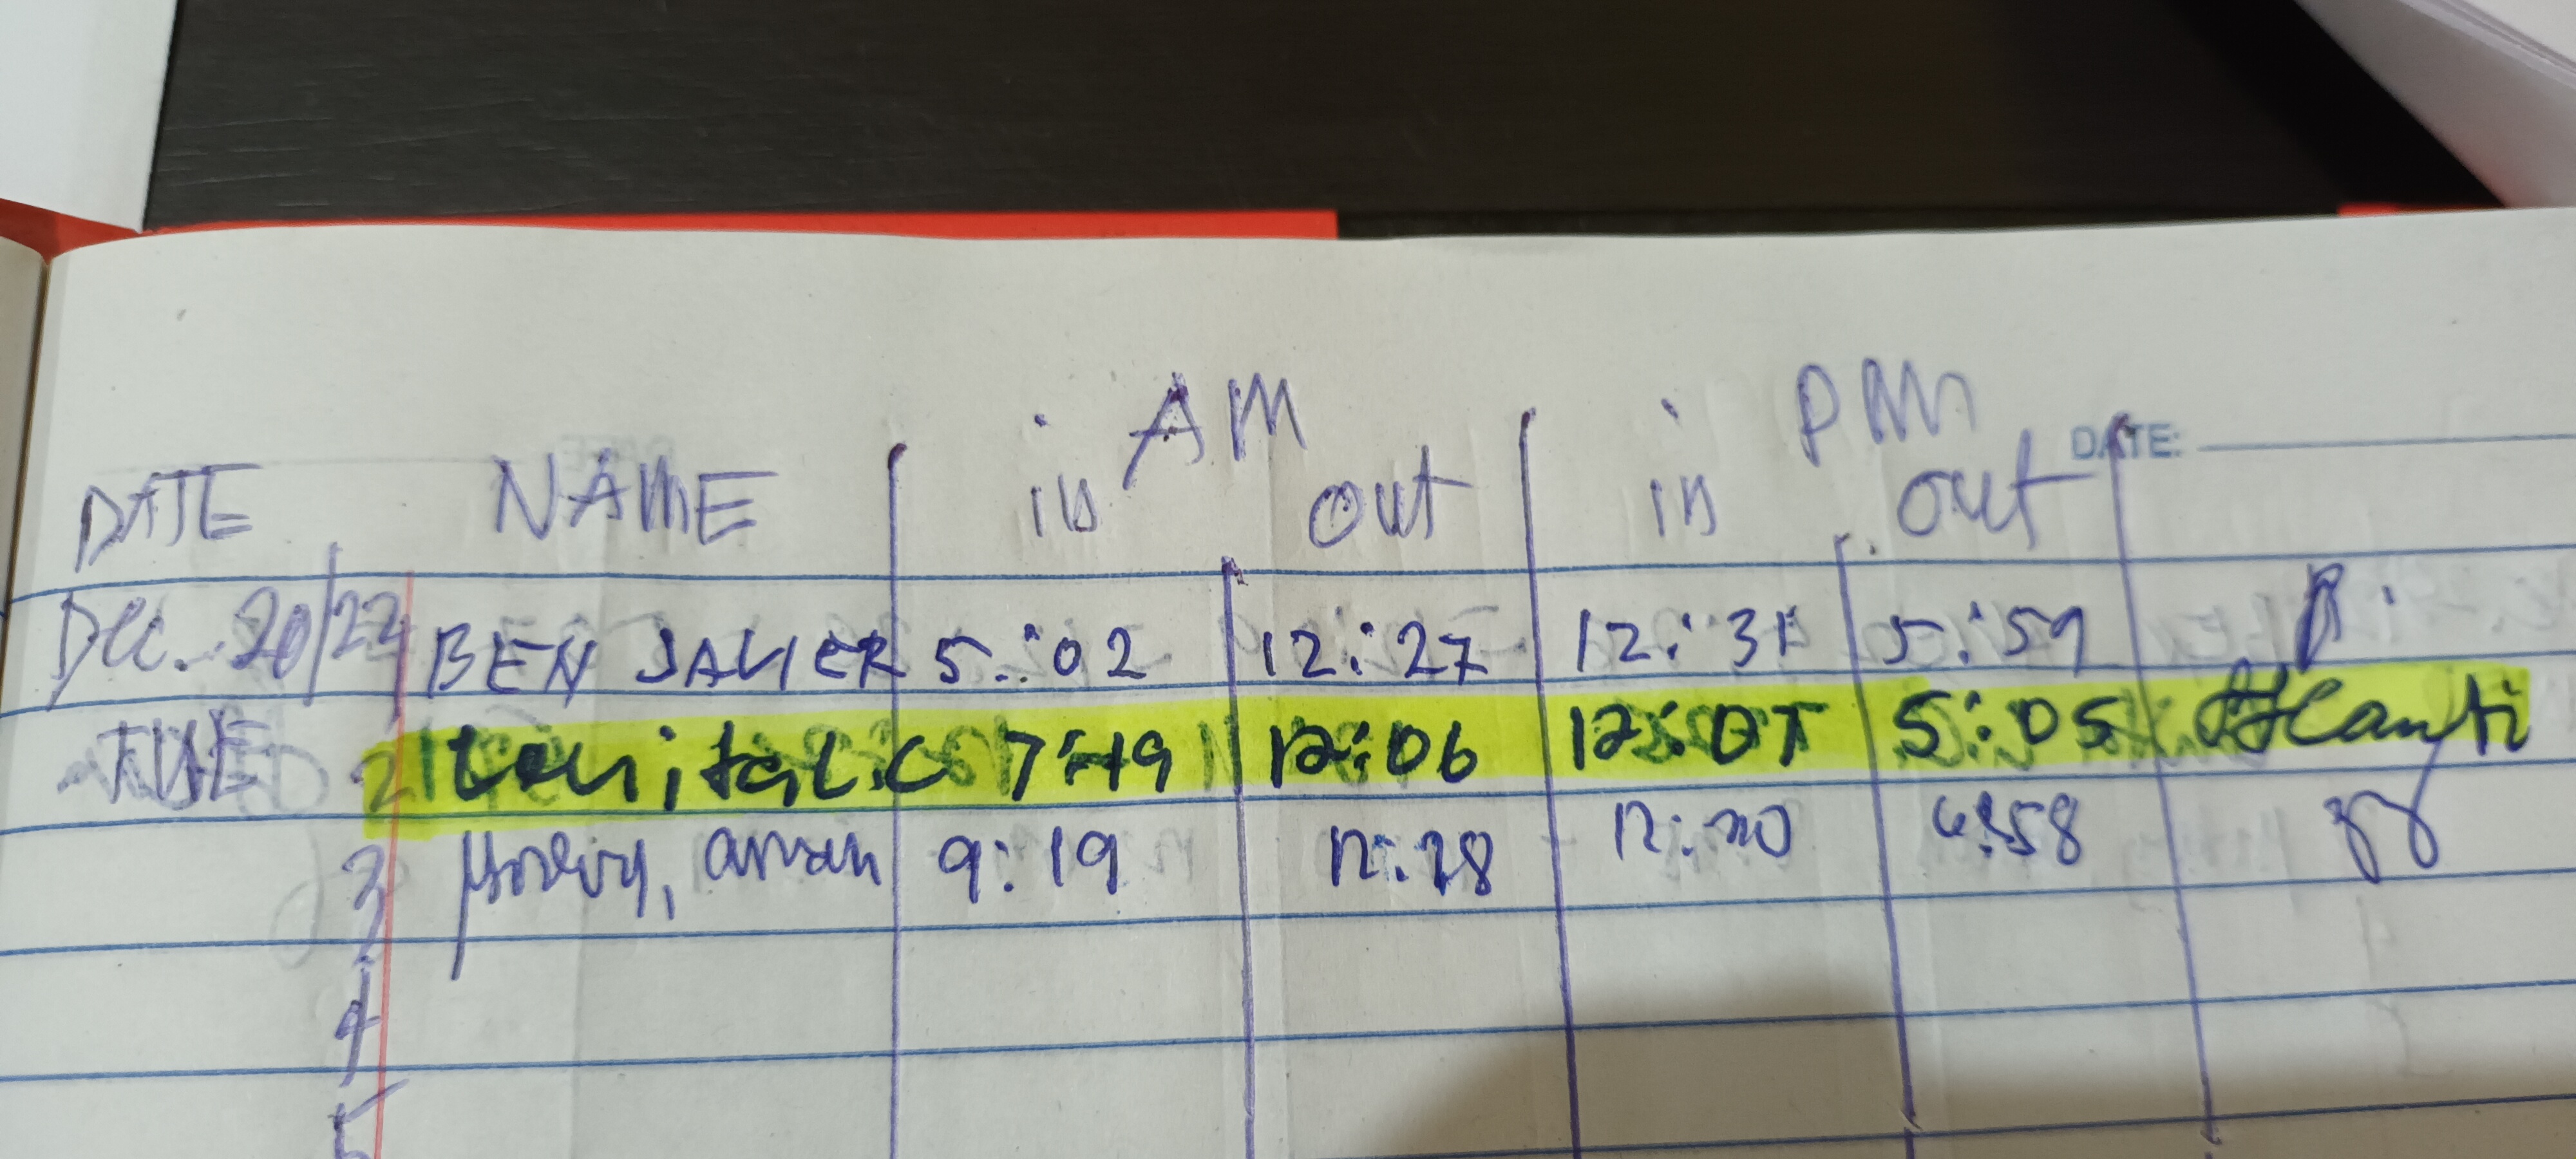 AM PM
DATE:
DATE NAME in out in out
Dec. 20/22 BEN JAVIER 5:02 12:27 12:31 5:59
TUE 2 C 7:49 12:06 12:07 5:05
3 9:19 12:28 12:30 6:58
4
5